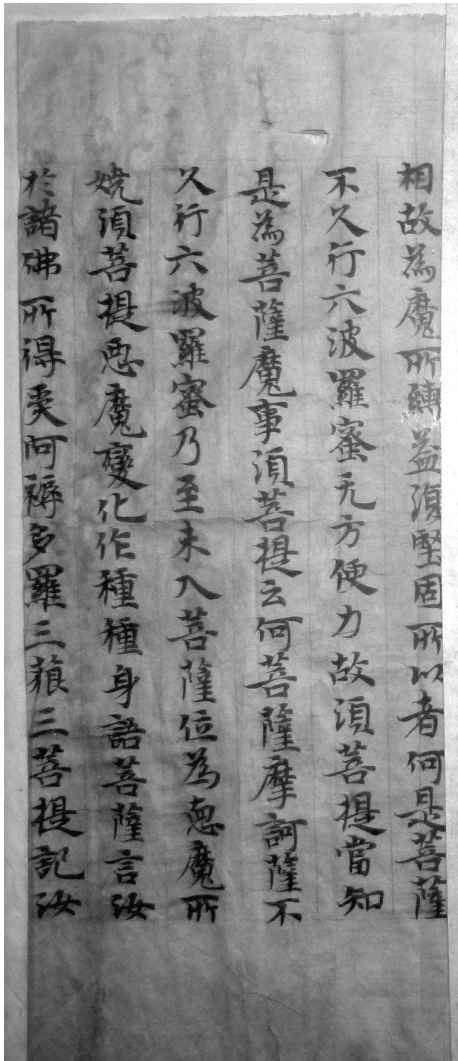 相故為魔所縛益湏堅固所以者何是菩薩
不久行六波羅蜜无方便力故湏菩提當知
是為菩薩魔事湏菩提云何菩薩摩訶薩不
久行六波羅蜜乃至未入菩薩位為惡魔所
嬈湏菩提惡魔變化作種種身語菩薩言汝
於諸佛所得受阿耨多羅三藐三菩提記汝